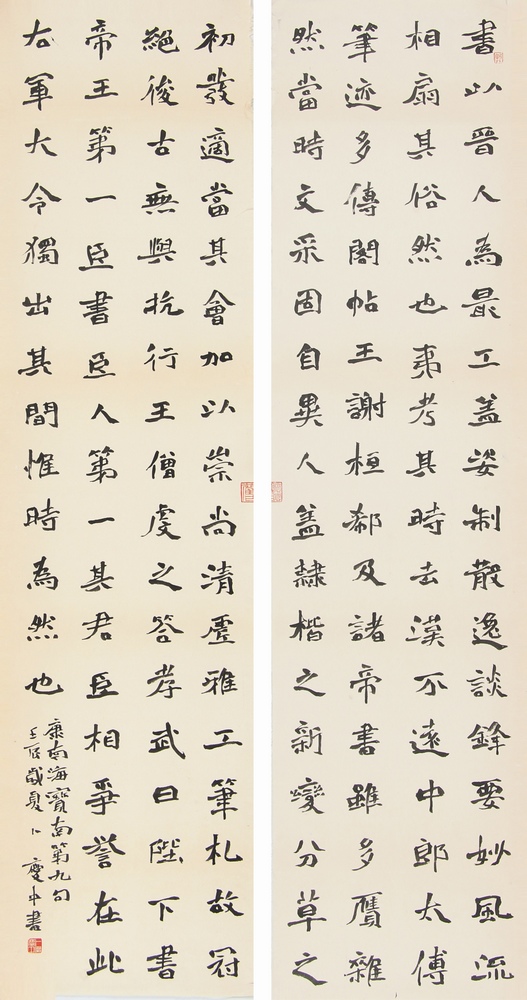 書以晉人為最工蓋姿制散逸談鋒要妙風流
相扇其俗然也夷考其時去漢不遠中郎太傅
筆迹多傳閣帖王謝桓郗及諸帝書雖多贋雜
然當時文采固自異人蓋隸楷之新變分草之
初發適當其會加以崇尚清虛雅工筆札故冠
絕後古無與抗行王僧虔之答孝武曰陛下書
帝王第一臣書臣人第一其君臣相爭譽在此
右軍大令獨出其間惟時為然也
康南海寶南第九句
壬辰歲夏卜慶中書